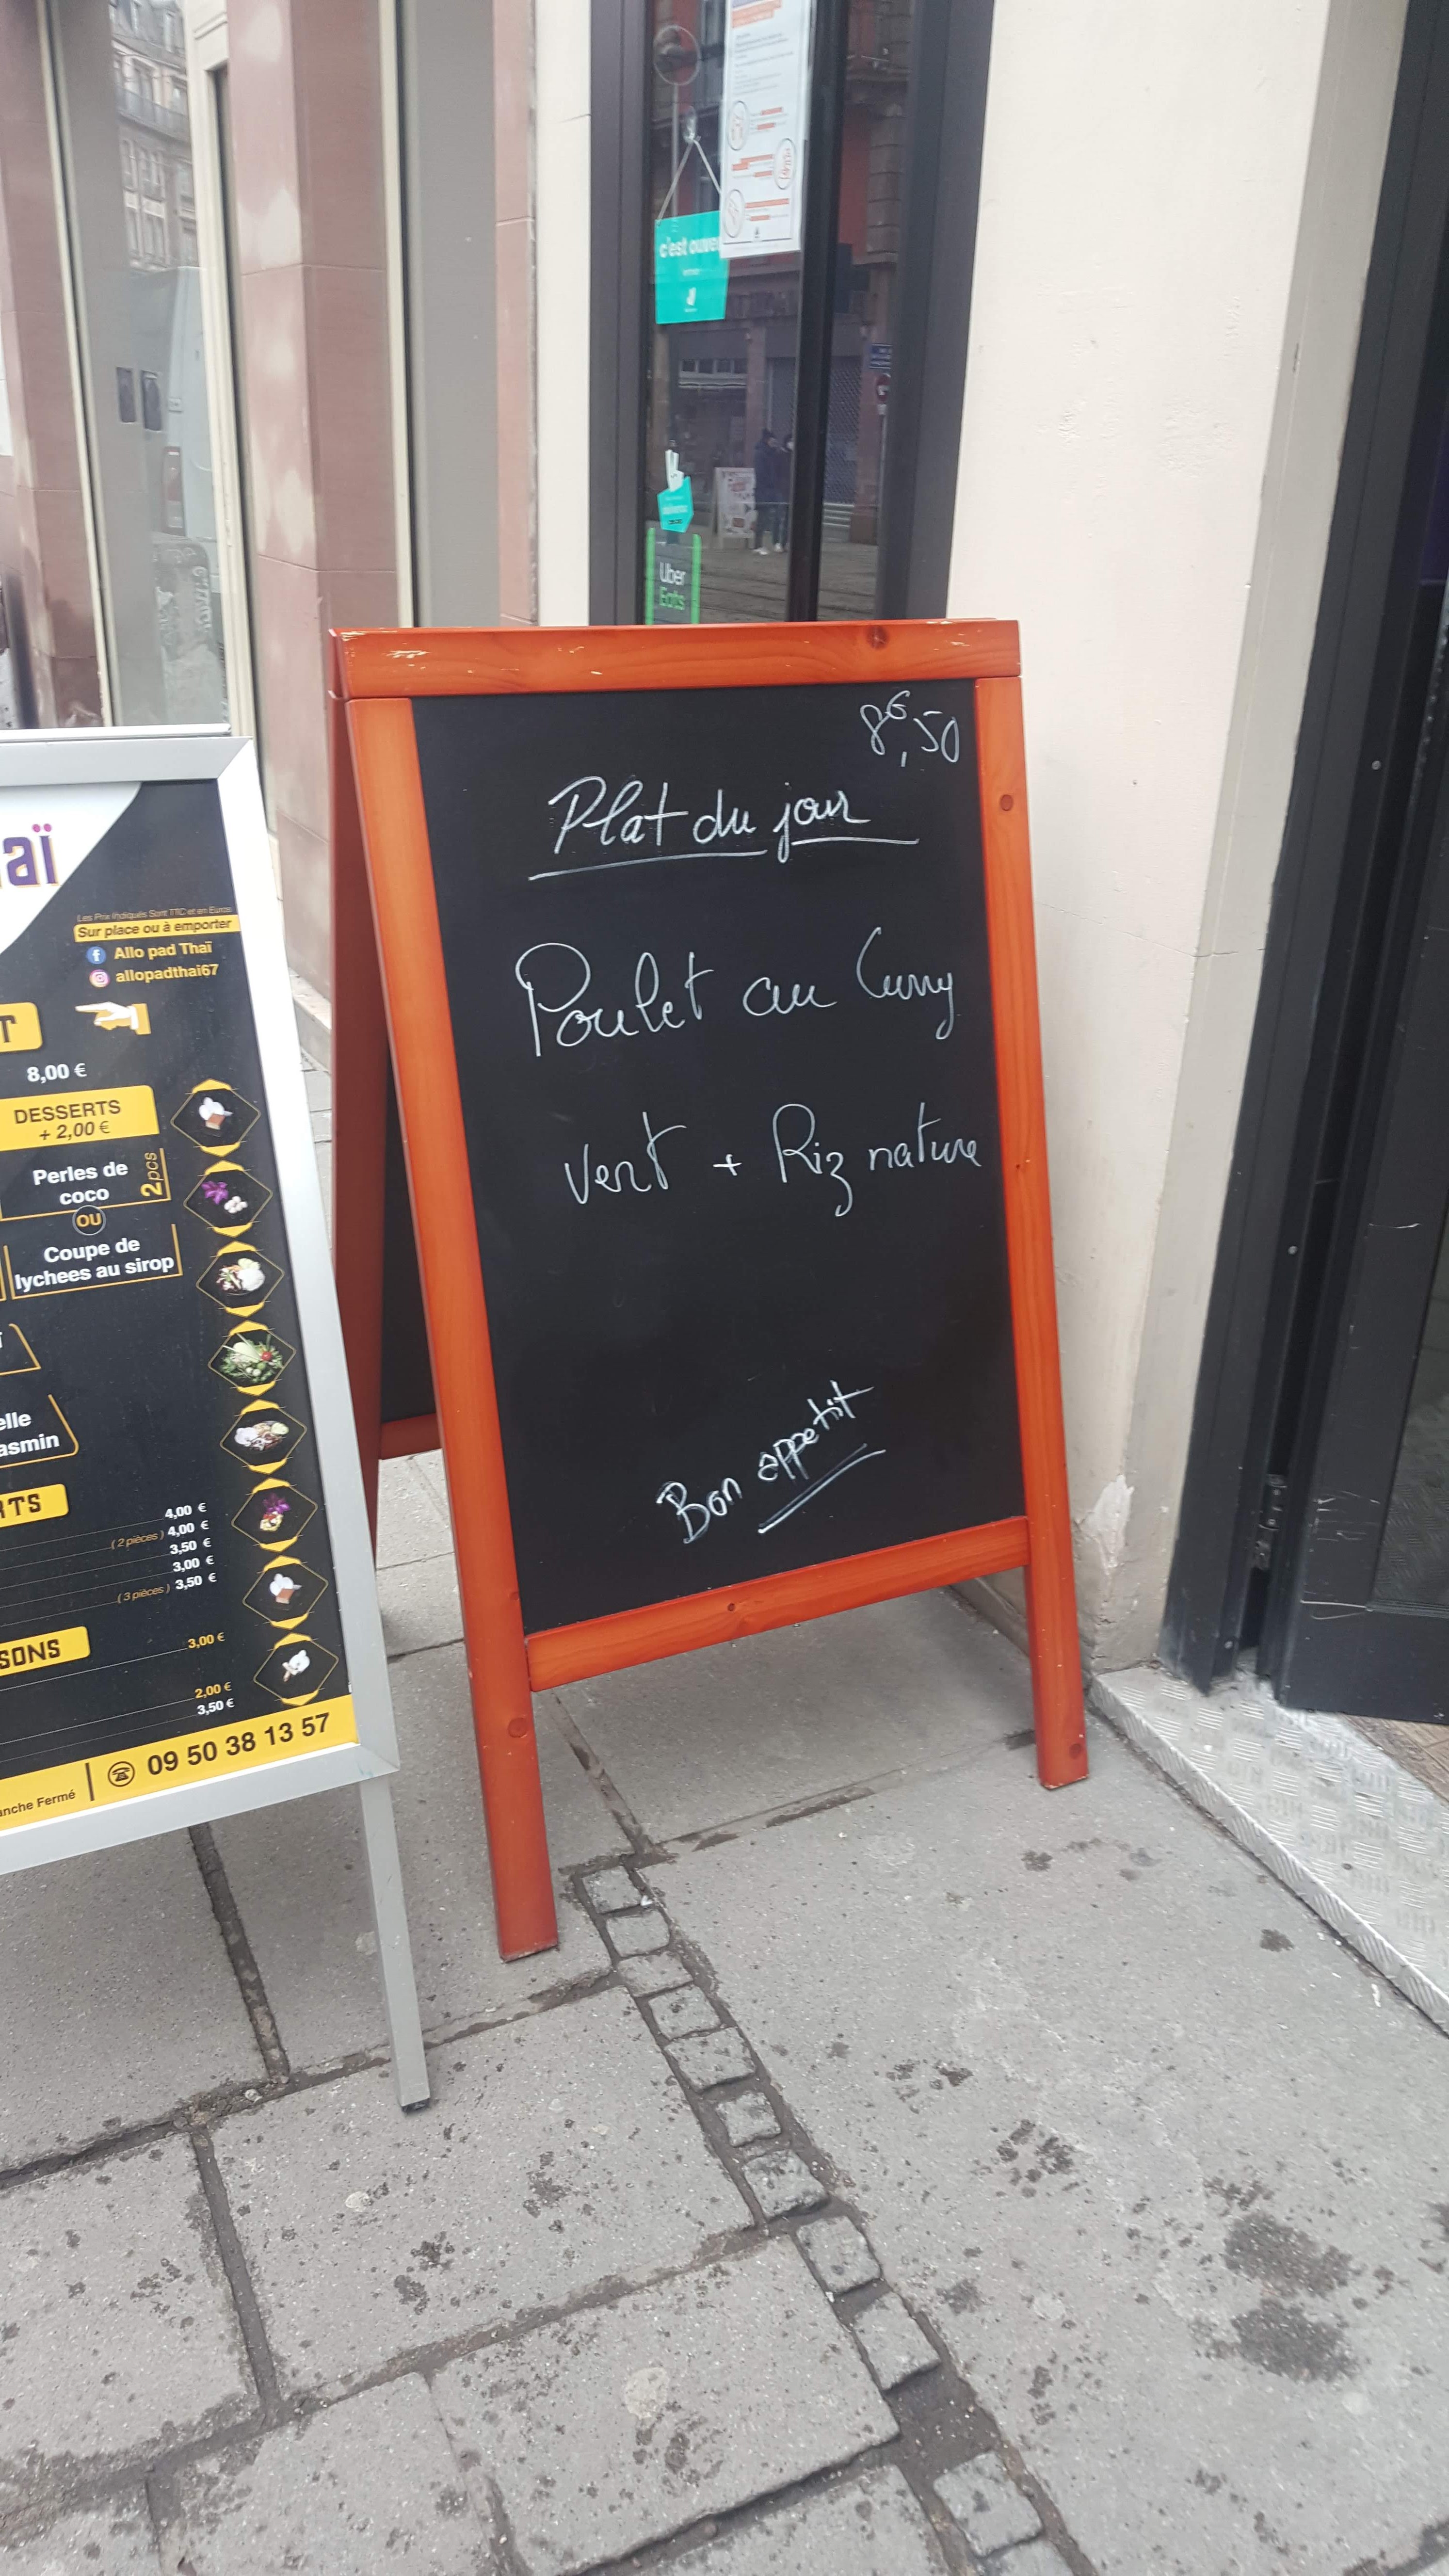 c'est ouve
Uber
Eats
8€,50
Plat du jour
Poulet au Curry
vert + Riz nature
Bon appetit
aï
Les Prix Indiqués Sont TTC et en Euros
Sur place ou à emporter
Allo pad Thaï
allopadthai67
T
8,00 €
DESSERTS
+ 2,00 €
Perles de
coco
2pcs
OU
Coupe de
lychees au sirop
elle
asmin
RTS
4,00 €
(2 pièces) 4,00 €
3,50 €
3,00 €
(3 pièces) 3,50 €
SONS
3,00 €
2,00 €
3,50 €
09 50 38 13 57
anche Fermé